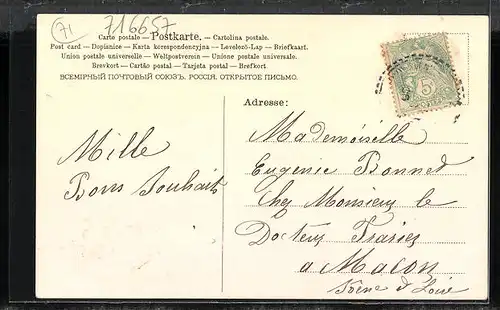 71
716657
Carte postale — Postkarte. — Cartolina postale.
Post card — Dopisnice — Karta korespondencyjna — Levelező-Lap — Briefkaart.
Union postale universelle — Weltpostverein — Unione postale universale.
Brevkort — Cartão postal — Tarjeta postal — Brefkort.
ВСЕМІРНЫЙ ПОЧТОВЫЙ СОЮЗЪ. РОССІЯ. ОТКРЫТОЕ ПИСЬМО.
5
Adresse:
Mille
Bons Souhaits
Mademoiselle
Eugenie Bonnet
Chez Monsieur le
Docteur
a Macon
Saône & Loire